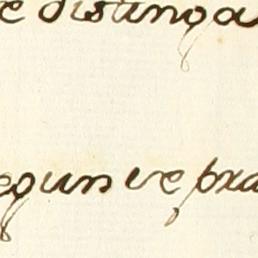 e distinga
egun se pra